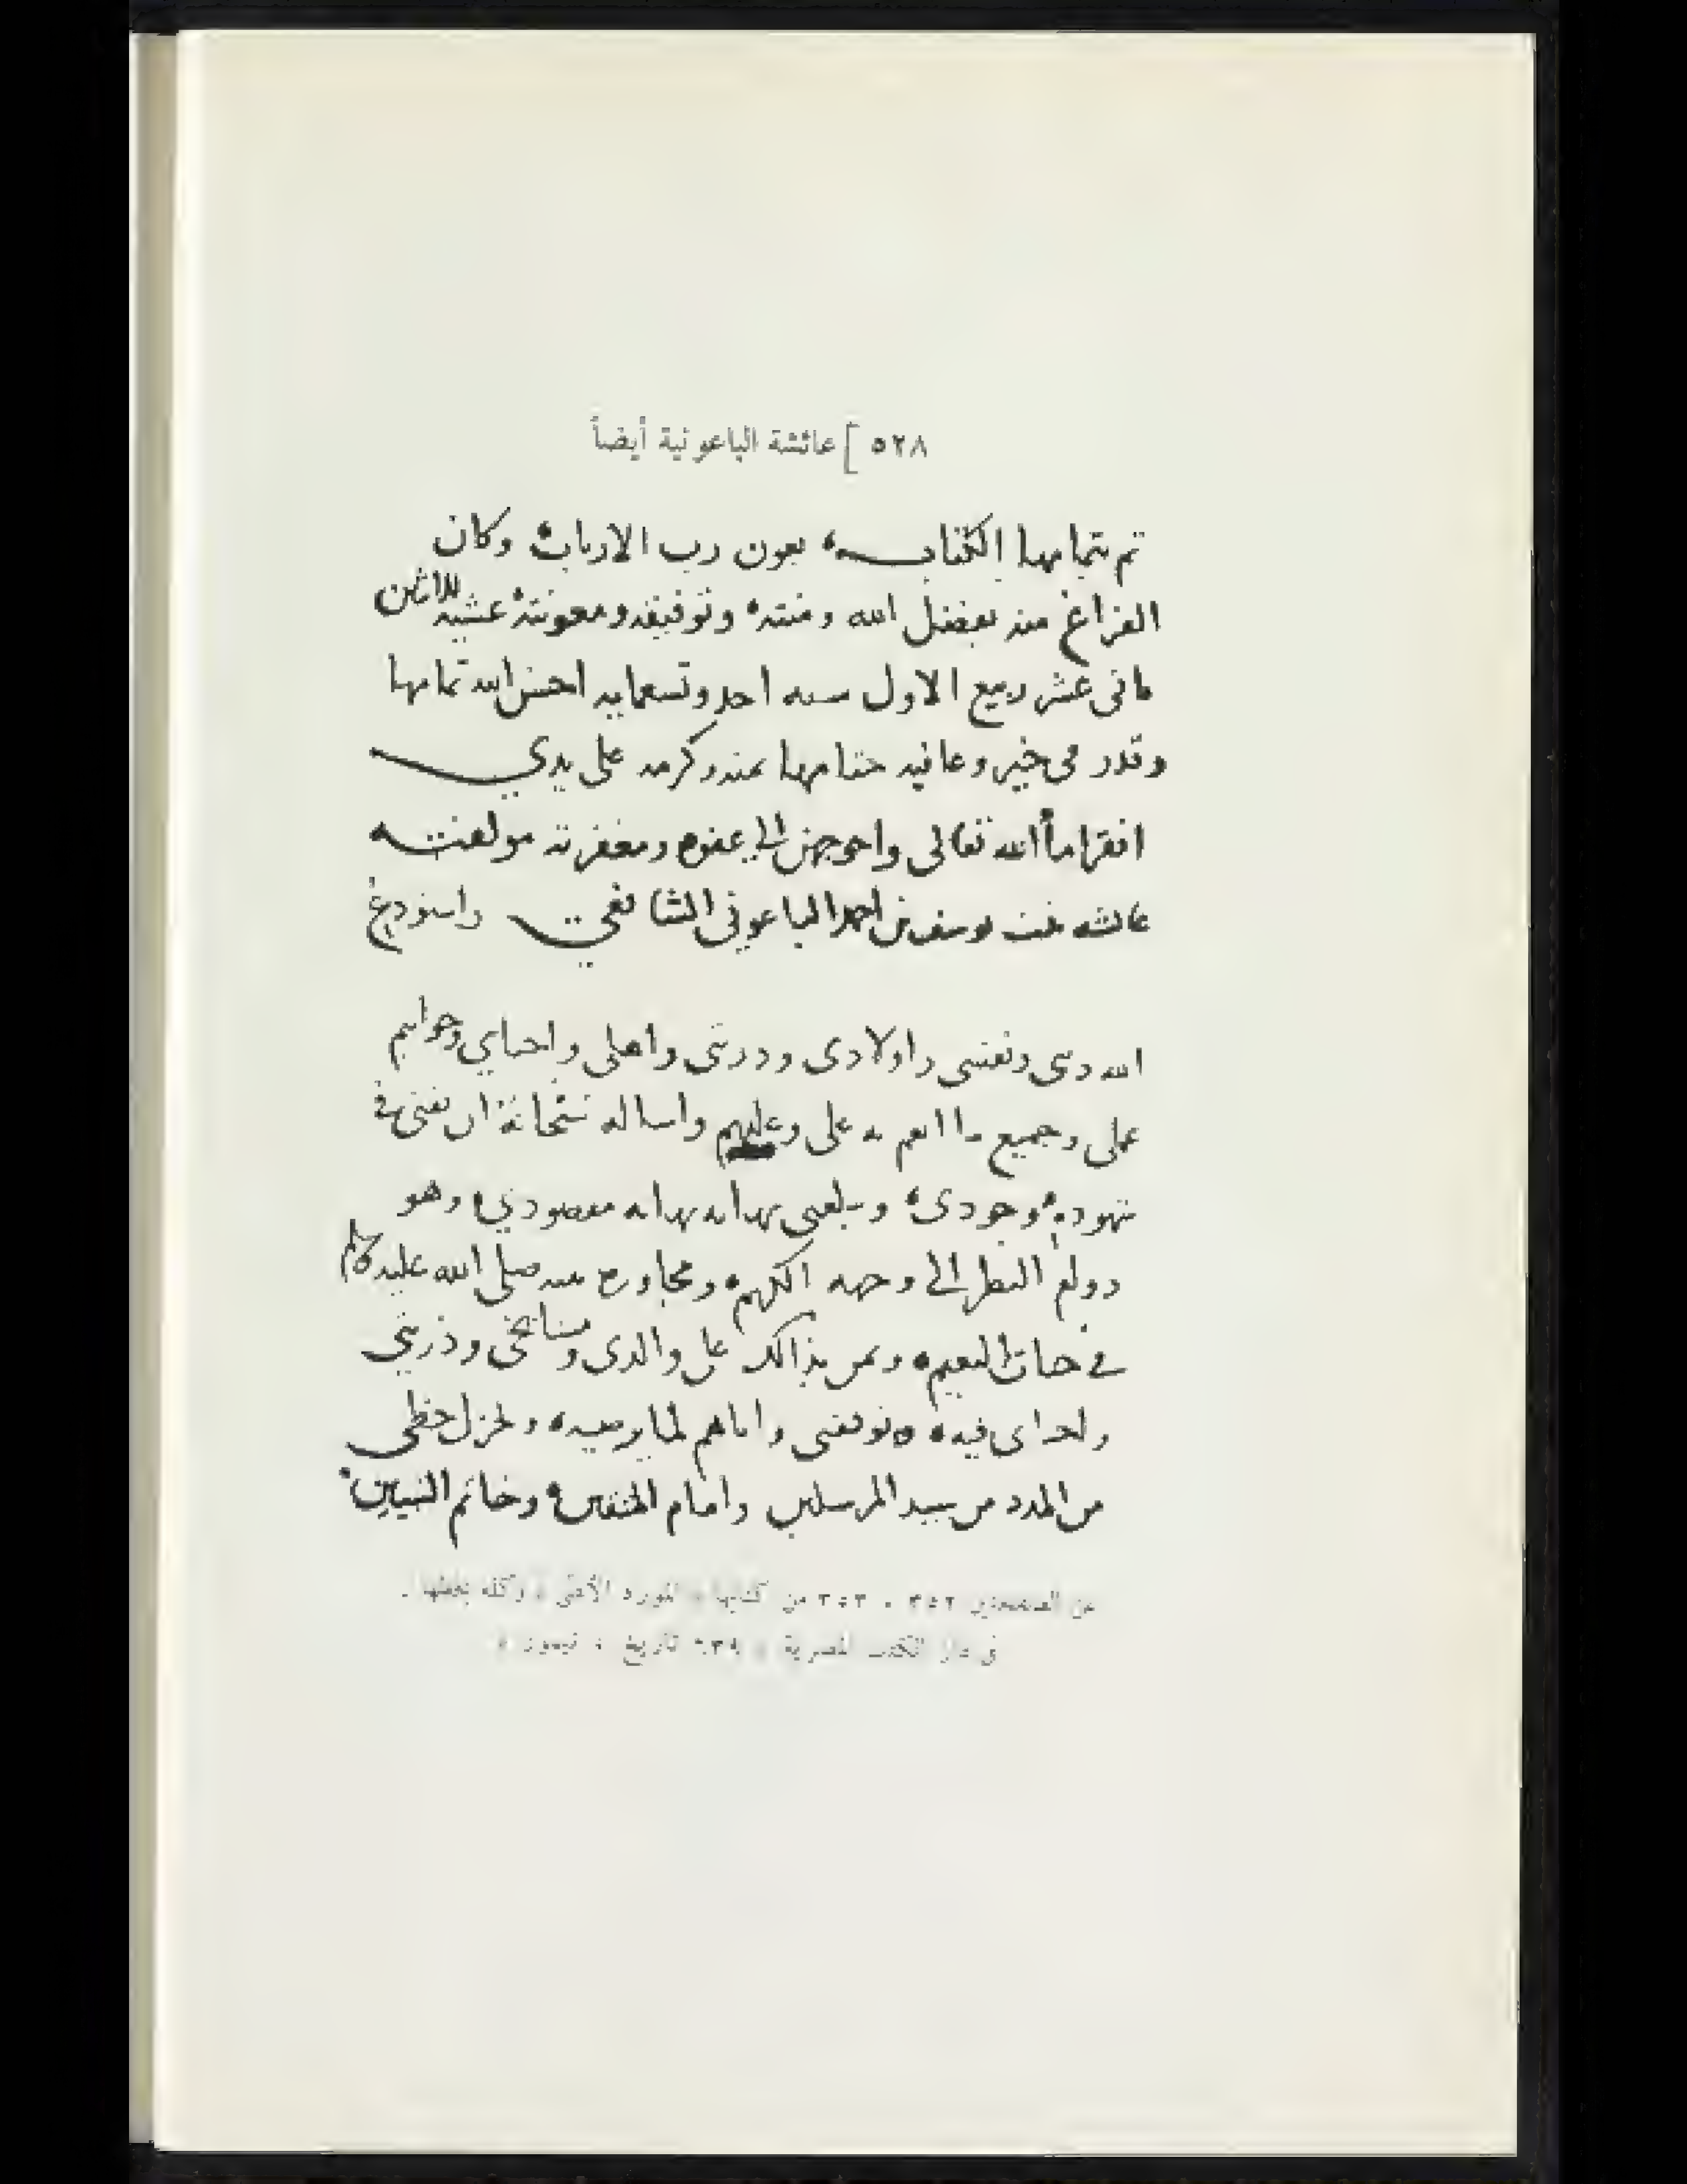 ٥٢٨ [ عائشة الباعونية أيضاً
تم بتمامها الكتاب بعون رب الارباب وكان
الفراغ منه بفضل الله ومنته وتوفيقه ومعونته عشية الاثنين
ثاني عشر ربيع الاول سنه احد وتسعمايه احسن الله تمامها
وقدر في خير وعافيه ختامها بمنه وكرمه على يدي
افقر اماء الله تعالى واحوجهن الى عفوه ومغفرته مولفته
عائشه بنت يوسف بن احمد الباعوني الشافعي واستودع
الله ديني ونفسي واولادي وذريتي واهلي واحبابي وخواتيم
عملي وجميع ما انعم به علي وعليهم واساله سبحانه ان يفني في
شهوده وجودي ويبلغني مقصودي وهو
دوام النظر الى وجهه الكريم ومجاورة صلى الله عليه وسلم
في جنات النعيم ويمن بذالك على والدي ومشايخي وذريتي
واحباي فيه وتوفقني واياهم لما يرضيه ويجزل حظي
من المدد من سيد المرسلين وامام المتقين وخاتم النبيين
عن الصفحتين ٣٥٢ ، ٣٥٣ من كتابها « المورد الأهنى » وكله بخطها .
في دار الكتب المصرية « ٦٣٩ تاريخ ، تيمور »